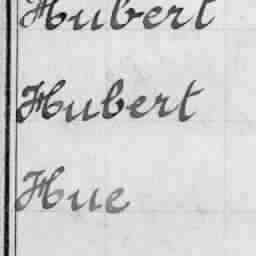 Hubert
Hubert
Hue